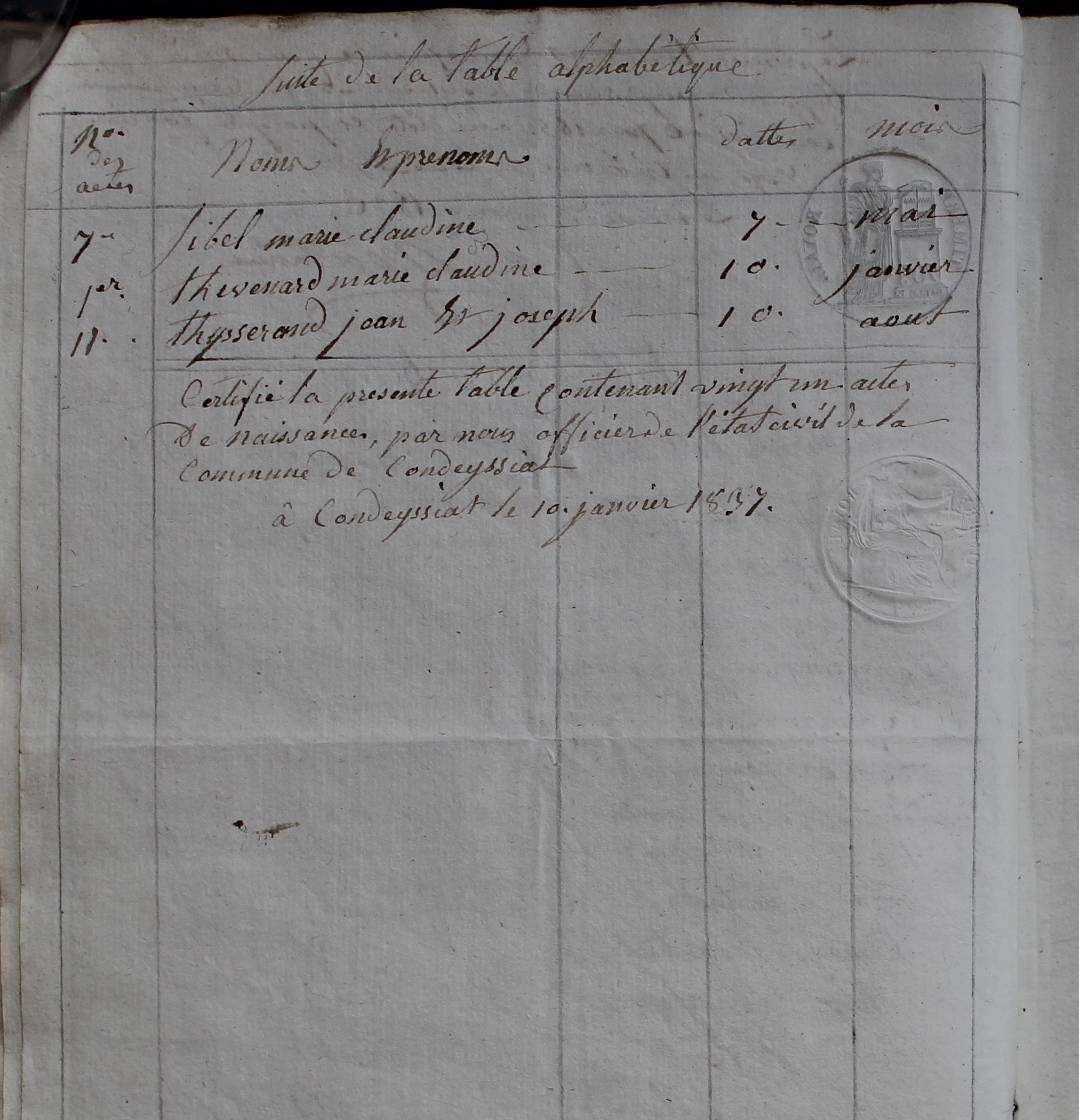 Suite de la table alphabétique
Nos des actes Noms & prenoms dattes mois
7 Sibel marie claudine 7 mai
1er. thevenard marie claudine 10. janvier
11. thysserand jean joseph 10. aout
Certifié la presente table contenant vingt un actes
De naissances, par nous officier de l'état civil de la
Commune de Condeyssiat
à Condeyssiat le 10. janvier 1837.